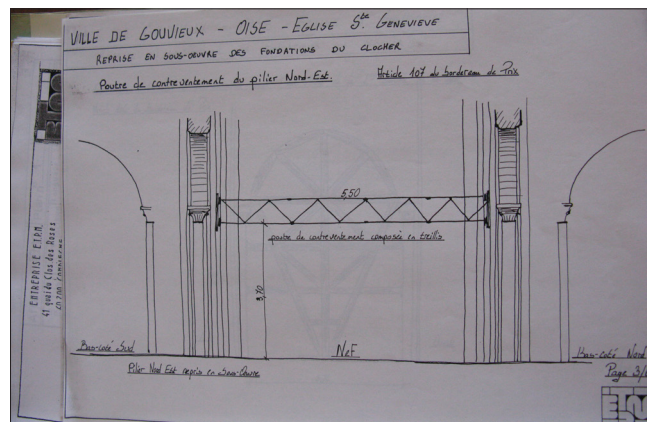 VILLE DE GOUVIEUX - OISE - EGLISE Ste GENEVIEVE
REPRISE EN SOUS-OEUVRE DES FONDATIONS DU CLOCHER
Poutre de contreventement du pilier Nord-Est.
Article 107 du bordereau de Prix
5,50
poutre de contreventement composée en treillis
3,70
Bas-coté Sud
NEF
Bas-coté Nord
Pilier Nord Est repris en Sous-Oeuvre
Page 3/
ENTREPRISE E.T.P.M.
41 quai du Clos des Roses